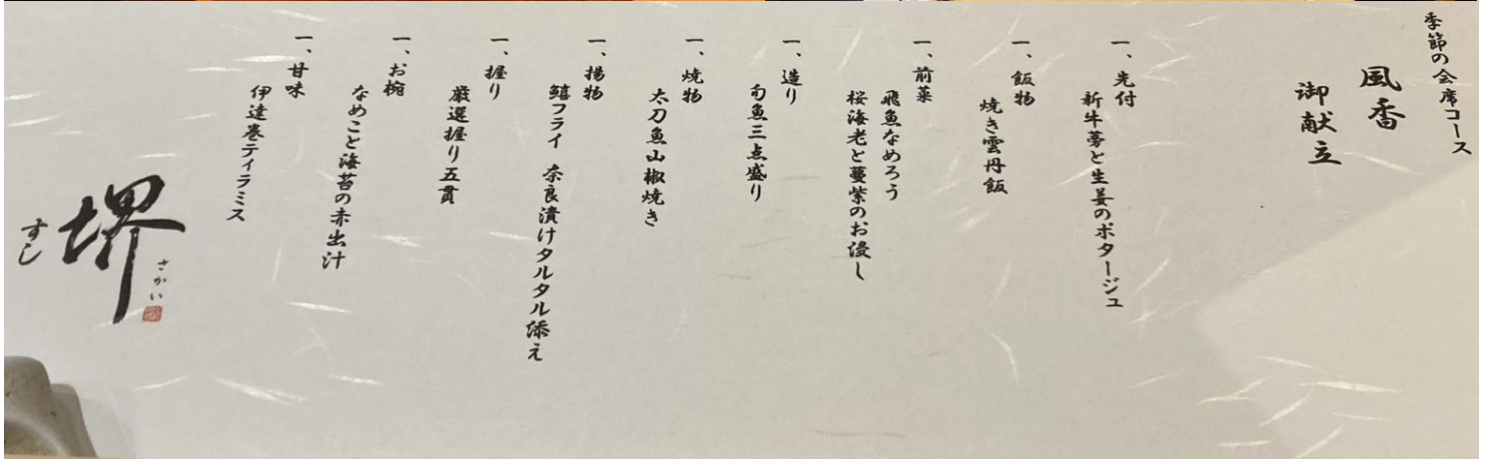 季節の会席コース
風香
御献立
一、先付
新牛蒡と生姜のポタージュ
一、飯物
焼き雲丹飯
一、前菜
飛魚なめろう
桜海老と蔓紫のお浸し
一、造り
旬魚三点盛り
一、焼物
太刀魚山椒焼き
一、揚物
鱚フライ 奈良漬けタルタル添え
一、握り
厳選握り五貫
一、お椀
なめこと海苔の赤出汁
一、甘味
伊達巻ティラミス
さかい
堺
すし